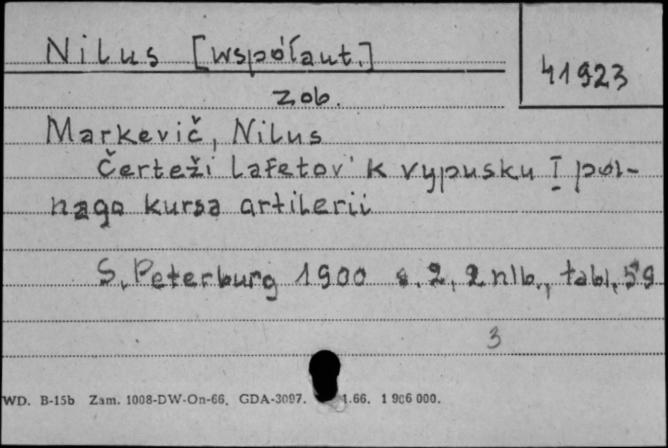 Nilus [współaut.]
41923
zob.
Markevič, Nilus
Čerteži lafetov' k vypusku I pol-
nago kursa artilerii
S. Peterburg 1900 s. 2, 2 nlb., tabl. 59
3
WD. B-15b Zam. 1008-DW-On-66. GDA-3097. 1.66. 1 906 000.